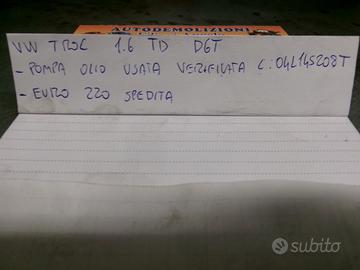 AUTODEMOLIZIONI
VW TROC 1.6 TD DGT
- POMPA OLIO USATA VERIFICATA C:04L145208T
- EURO 220 SPEDITA
subito